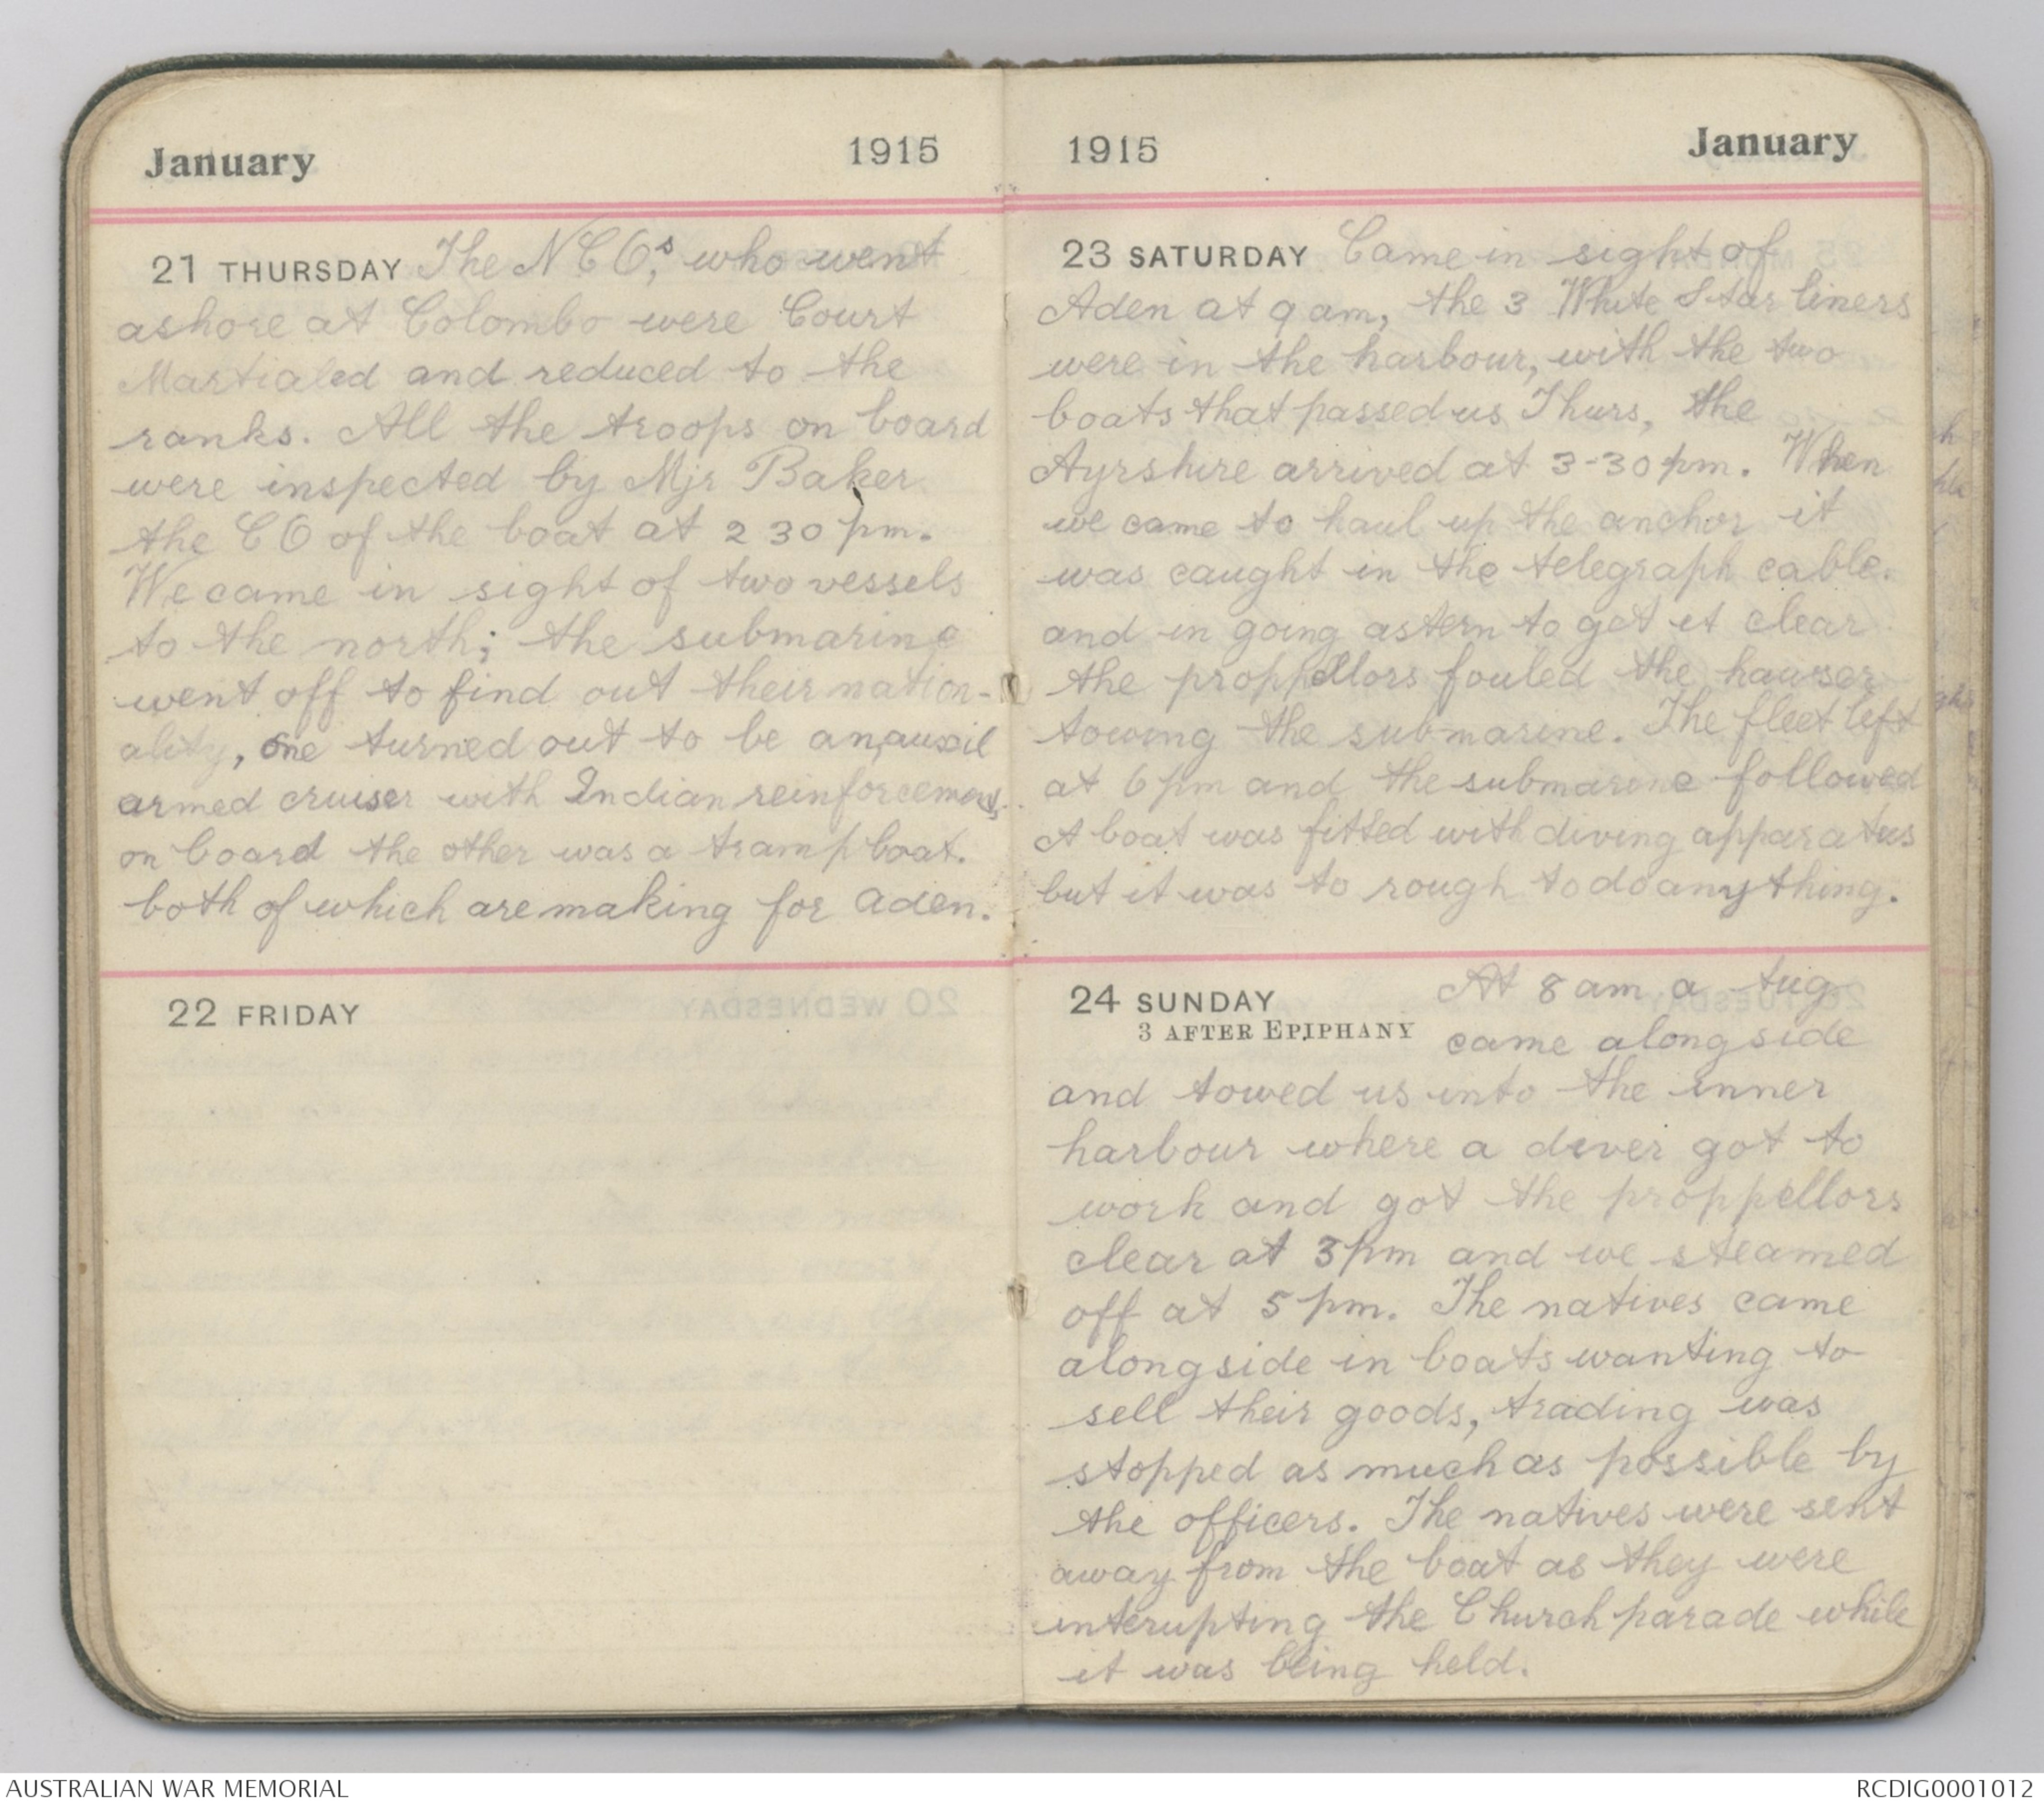 January 1915
21 THURSDAY The NCO,s who went
ashore at Colombo were Court
Martialed and reduced to the
ranks. All the troops on board
were inspected by Mjr Baker
the CO of the boat at 2 30 pm.
We came in sight of two vessels
to the north; the submarine
went off to find out their nation-
ality, one turned out to be an, auxil
armed cruiser with Indian reinforcements
on board the other was a tramp boat.
both of which are making for Aden.
22 FRIDAY
1915 January
23 SATURDAY Came in sight of
Aden at 9 am, the 3 White Star liners
were in the harbour, with the two
boats that passed us Thurs, the
Ayrshire arrived at 3-30 pm. When
we came to haul up the anchor it
was caught in the telegraph cable.
and in going astern to get it clear
the proppellors fouled the hawser
towing the submarine. The fleet left
at 6 pm and the submarine followed
A boat was fitted with diving apparatus
but it was to rough to do anything.
24 SUNDAY At 8 am a tug
3 AFTER EPIPHANY came alongside
and towed us into the inner
harbour where a diver got to
work and got the proppellors
clear at 3 pm and we steamed
off at 5 pm. The natives came
alongside in boats wanting to
sell their goods, trading was
stopped as much as possible by
the officers. The natives were sent
away from the boat as they were
interupting the Church parade while
it was being held.
AUSTRALIAN WAR MEMORIAL RCDIG0001012